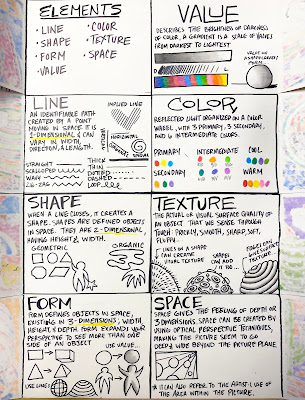 ELEMENTS
• LINE
• SHAPE
• FORM
• VALUE
• COLOR
• TEXTURE
• SPACE
VALUE
DESCRIBES THE BRIGHTNESS OR DARKNESS
OF COLOR, A GRADIENT IS A SCALE OF VALUES
FROM DARKEST TO LIGHTEST
VALUE ON
FORM
LINE
AN IDENTIFIABLE PATH
CREATED BY A POINT
MOVING IN SPACE. IT IS
2-DIMENSIONAL & CAN
VARY IN WIDTH,
DIRECTION, & LENGTH.
IMPLIED LINE
VERTICAL
HORIZONTAL
DIAGONAL
SPIRAL
STRAIGHT
SCALLOPED
WAVY
ZIG-ZAG
THICK
THIN
DOTTED
DASHED
LOOP
COLOR
REFLECTED LIGHT ORGANIZED ON A COLOR
WHEEL, WITH 3 PRIMARY, 3 SECONDARY,
AND 6 INTERMEDIATE COLORS.
PRIMARY
INTERMEDIATE
COOL
SECONDARY
WARM
SHAPE
WHEN A LINE CLOSES, IT CREATES A
SHAPE. SHAPES ARE DEFINED OBJECTS
IN SPACE. THEY ARE 2-DIMENSIONAL,
HAVING HEIGHT & WIDTH.
GEOMETRIC
ORGANIC
TEXTURE
THE ACTUAL OR VISUAL SURFACE QUALITY OF
AN OBJECT THAT WE SENSE THROUGH
TOUCH: PRICKLY, SMOOTH, SHARP, SOFT,
FLUFFY...
LINES ON A SHAPE
CAN CREATE
VISUAL TEXTURE
SHAPES
CAN ADD
IT TOO...
TEXTURE.
FORM
FORM DEFINES OBJECTS IN SPACE,
EXISTING IN 3-DIMENSIONS; WIDTH,
HEIGHT & DEPTH. FORM EXPANDS YOUR
PERSPECTIVE TO SEE MORE THAN ONE
SIDE OF AN OBJECT
USE VALUE...
USE LINE!
SPACE
SPACE GIVES THE FEELING OF DEPTH OR
3 DIMENSIONS. SPACE CAN BE CREATED BY
USING OPTICAL PERSPECTIVE TECHNIQUES,
MAKING THE PICTURE SEEM TO GO
DEEP & WIDE BEYOND THE PICTURE PLANE.
* IT CAN ALSO REFER TO THE ARTIST'S USE OF
THE AREA WITHIN THE PICTURE.